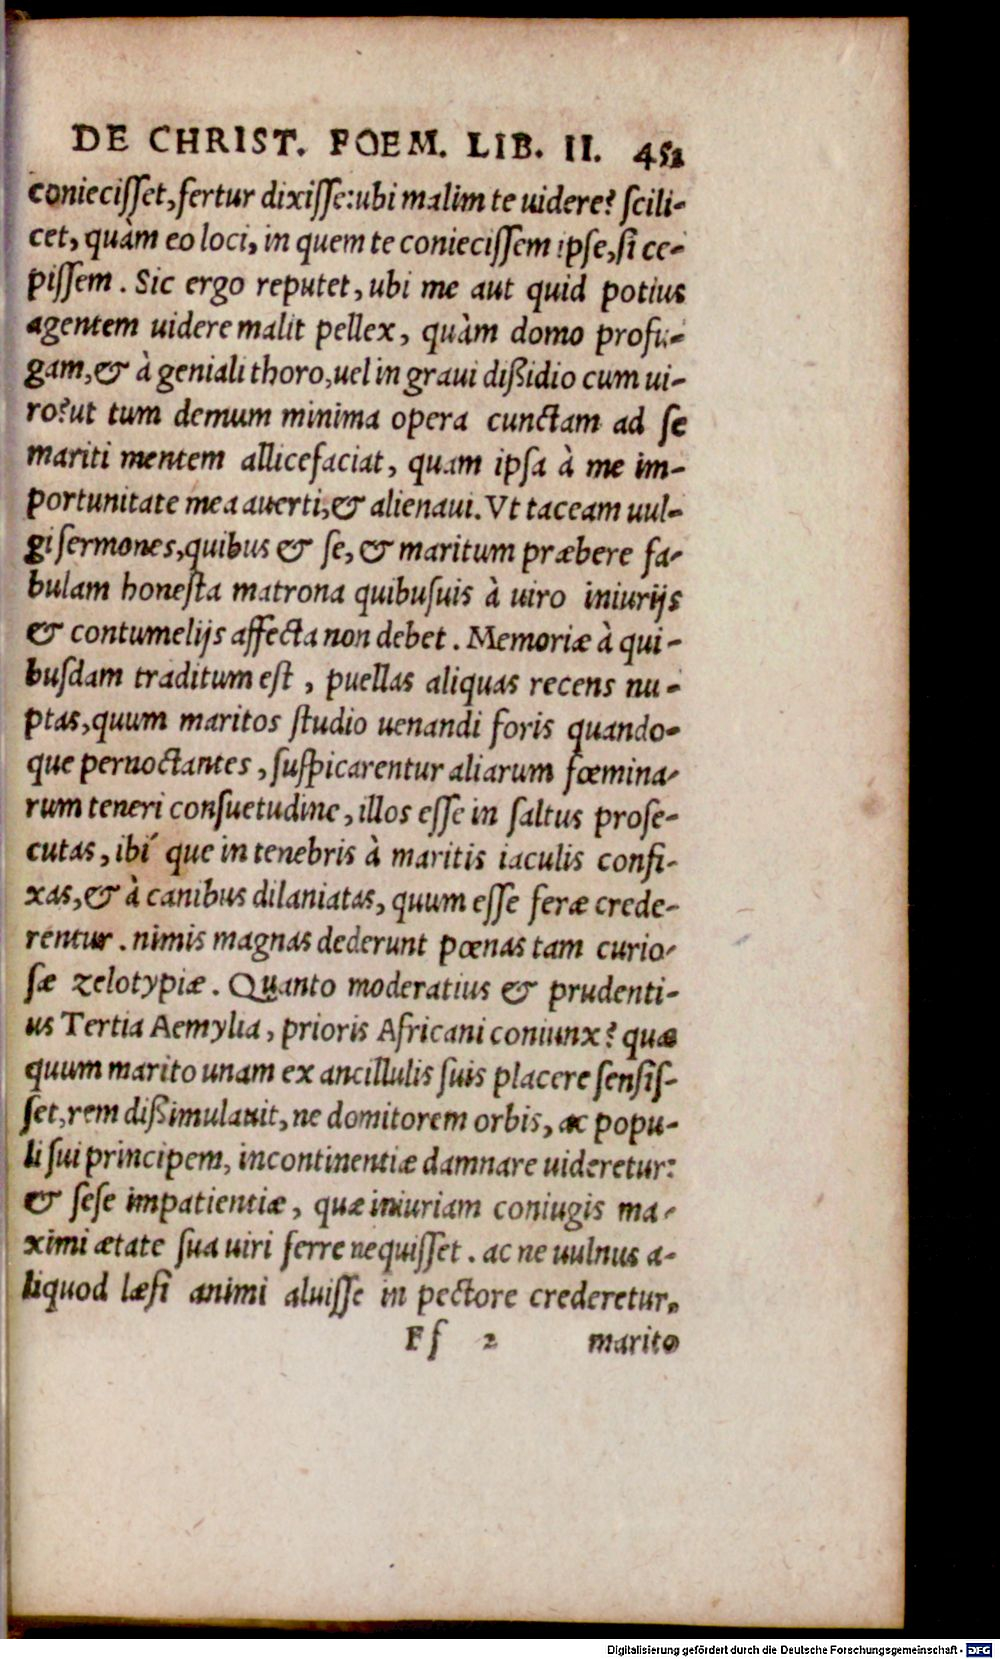 DE CHRIST. FOEM. LIB. II. 451
coniecisset, fertur dixisse: ubi malim te uidere? scili-
cet, quàm eo loci, in quem te coniecissem ipse, si ce-
pissem. Sic ergo reputet, ubi me aut quid potius
agentem uidere malit pellex, quàm domo profu-
gam, & à geniali thoro, uel in graui dißidio cum ui-
ro? ut tum demum minima opera cunctam ad se
mariti mentem allicefaciat, quam ipsa à me im-
portunitate mea auerti, & alienaui. Vt taceam uul-
gi sermones, quibus & se, & maritum præbere fa-
bulam honesta matrona quibusuis à uiro iniurijs
& contumelijs affecta non debet. Memoriæ à qui-
busdam traditum est, puellas aliquas recens nu-
ptas, quum maritos studio uenandi foris quando-
que pernoctantes, suspicarentur aliarum fœmina-
rum teneri consuetudine, illos esse in saltus prose-
cutas, ibíque in tenebris à maritis iaculis confi-
xas, & à canibus dilaniatas, quum esse feræ crede-
rentur. nimis magnas dederunt pœnas tam curio-
sæ zelotypiæ. Quanto moderatius & prudenti-
us Tertia Aemylia, prioris Africani coniunx? quæ
quum marito unam ex ancillulis suis placere sensis-
set, rem dißimulauit, ne domitorem orbis, ac popu-
li sui principem, incontinentiæ damnare uideretur:
& sese impatientiæ, quæ iniuriam coniugis ma-
ximi ætate sua uiri ferre nequisset. ac ne uulnus a-
liquod læsi animi aluisse in pectore crederetur,
Ff 2 marito
Digitalisierung gefördert durch die Deutsche Forschungsgemeinschaft - DFG